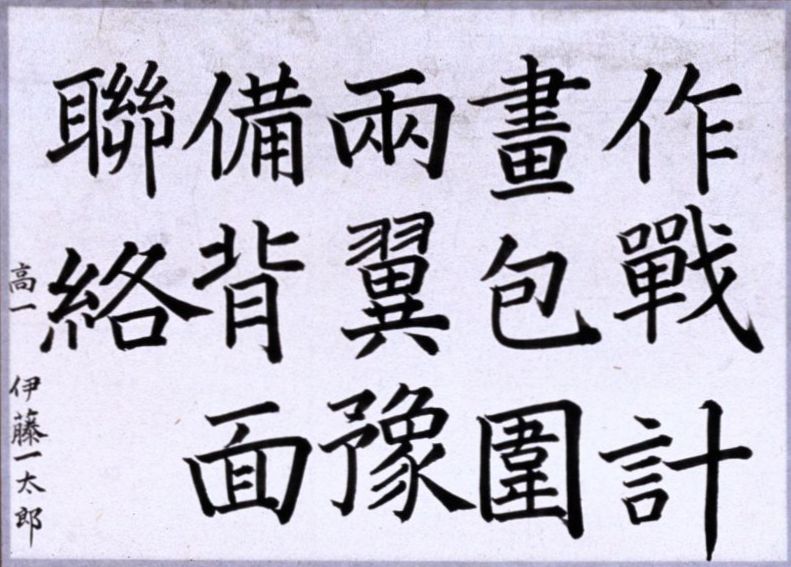 作戰計
畫包圍
兩翼豫
備背面
聯絡
高一 伊藤一太郎